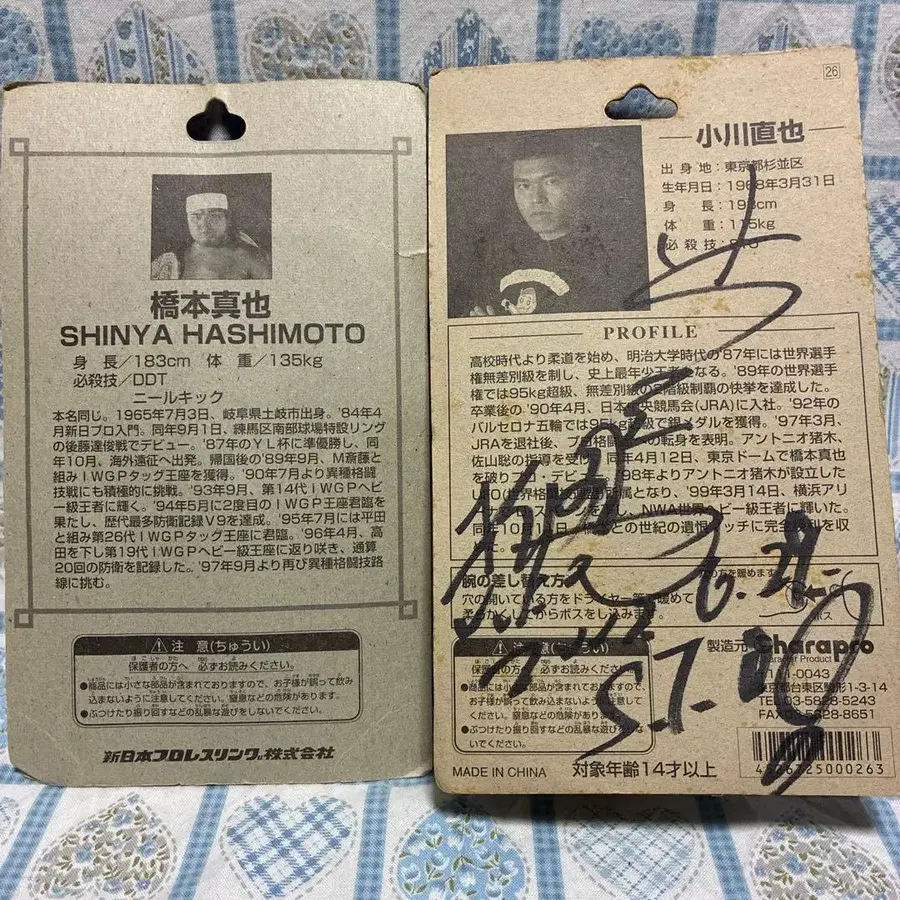 橋本真也
SHINYA HASHIMOTO
身 長/183cm 体 重/135kg
必殺技/DDT
ニールキック
本名同じ。1965年7月3日、岐阜県土岐市出身。'84年4
月新日プロ入門。同年9月1日、練馬区南部球場特設リング
の後藤達俊戦でデビュー。'87年のYL杯に準優勝し、同
年10月、海外遠征へ出発。帰国後の'89年9月、M斎藤と
組みIWGPタッグ王座を獲得。'90年7月より異種格闘
技戦にも積極的に挑戦。'93年9月、第14代IWGPヘビ
ー級王者に輝く。'94年5月に2度目のIWGP王座君臨を
果たし、歴代最多防衛記録V9を達成。'95年7月には平田
と組み第26代IWGPタッグ王座に君臨。'96年4月、高
田を下し第19代IWGPヘビー級王座に返り咲き、通算
20回の防衛を記録した。'97年9月より再び異種格闘技路
線に挑む。
注 意(ちゅうい)
保護者の方へ 必ずお読みください。
●商品には小さな部品が含まれておりますので、お子様が誤って飲み
込まないように注意してください。窒息などの危険があります。
●ぶつけたり振り回すなどの乱暴な遊びをしないでください。
新日本プロレスリング株式会社
26
小川直也
出 身 地:東京都杉並区
生年月日:1968年3月31日
身 長:193cm
体 重:115kg
必殺技:STO
PROFILE
高校時代より柔道を始め、明治大学時代の'87年には世界選手
権無差別級を制し、史上最年少王者となる。'89年の世界選手
権では95kg超級、無差別級の2階級制覇の快挙を達成した。
卒業後の'90年4月、日本中央競馬会(JRA)に入社。'92年の
バルセロナ五輪では95kg超級で銀メダルを獲得。'97年3月、
JRAを退社後、プロ格闘家への転身を表明。アントニオ猪木、
佐山聡の指導を受け、同年4月12日、東京ドームで橋本真也
を破りプロ・デビュー。'98年よりアントニオ猪木が設立した
UFO(世界格闘技連盟)所属となり、'99年3月14日、横浜アリ
ーンを NWA世界ヘビー級王者に輝いた。
同年10月11日、橋本との世紀の遺恨マッチに完全勝利を収
腕の差し替え方
穴の開いている方をドライヤー等で暖めて
柔らかくしてからボスをさし込みます。
の方を暖めます
ボス
注 意(ちゅうい)
保護者の方へ 必ずお読みください。
●商品には小さな部品が含まれておりますので、お子様が誤って飲み
込まないように注意し
ください。窒息などの危険があります。
●ぶつけたり振り回すなどの乱暴な遊びをしないで
ください。
製造元 Charapro
Character Product
〒111-0043
東京都台東区駒形1-3-14
TEL 03-5828-5243
FAX 03-5828-8651
6.29.
S.T.O
MADE IN CHINA
対象年齢14才以上
4526725000263